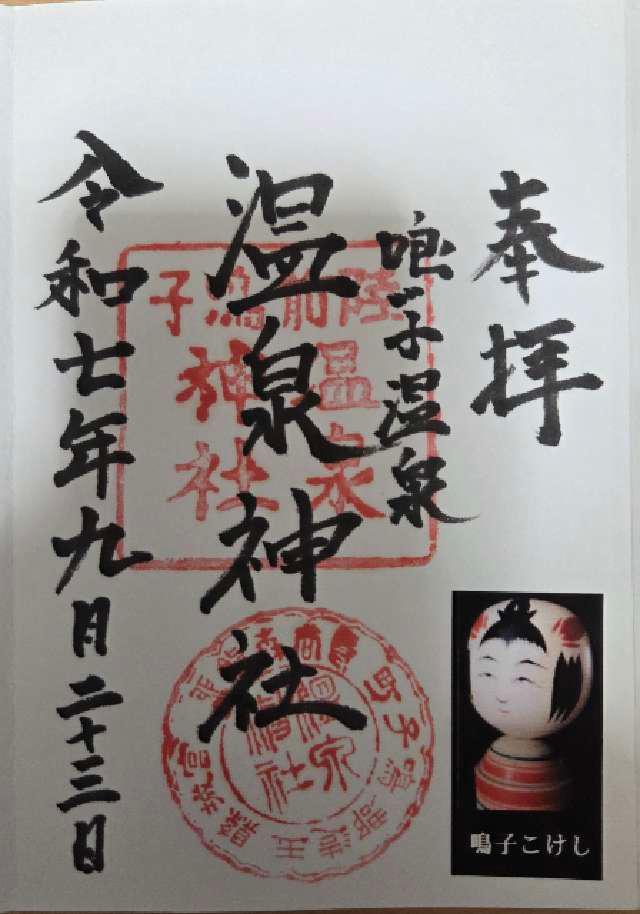 奉拝
鳴子温泉
温泉神社
令和七年九月二十三日
陸前鳴子
温泉
神社
鳴子こけし